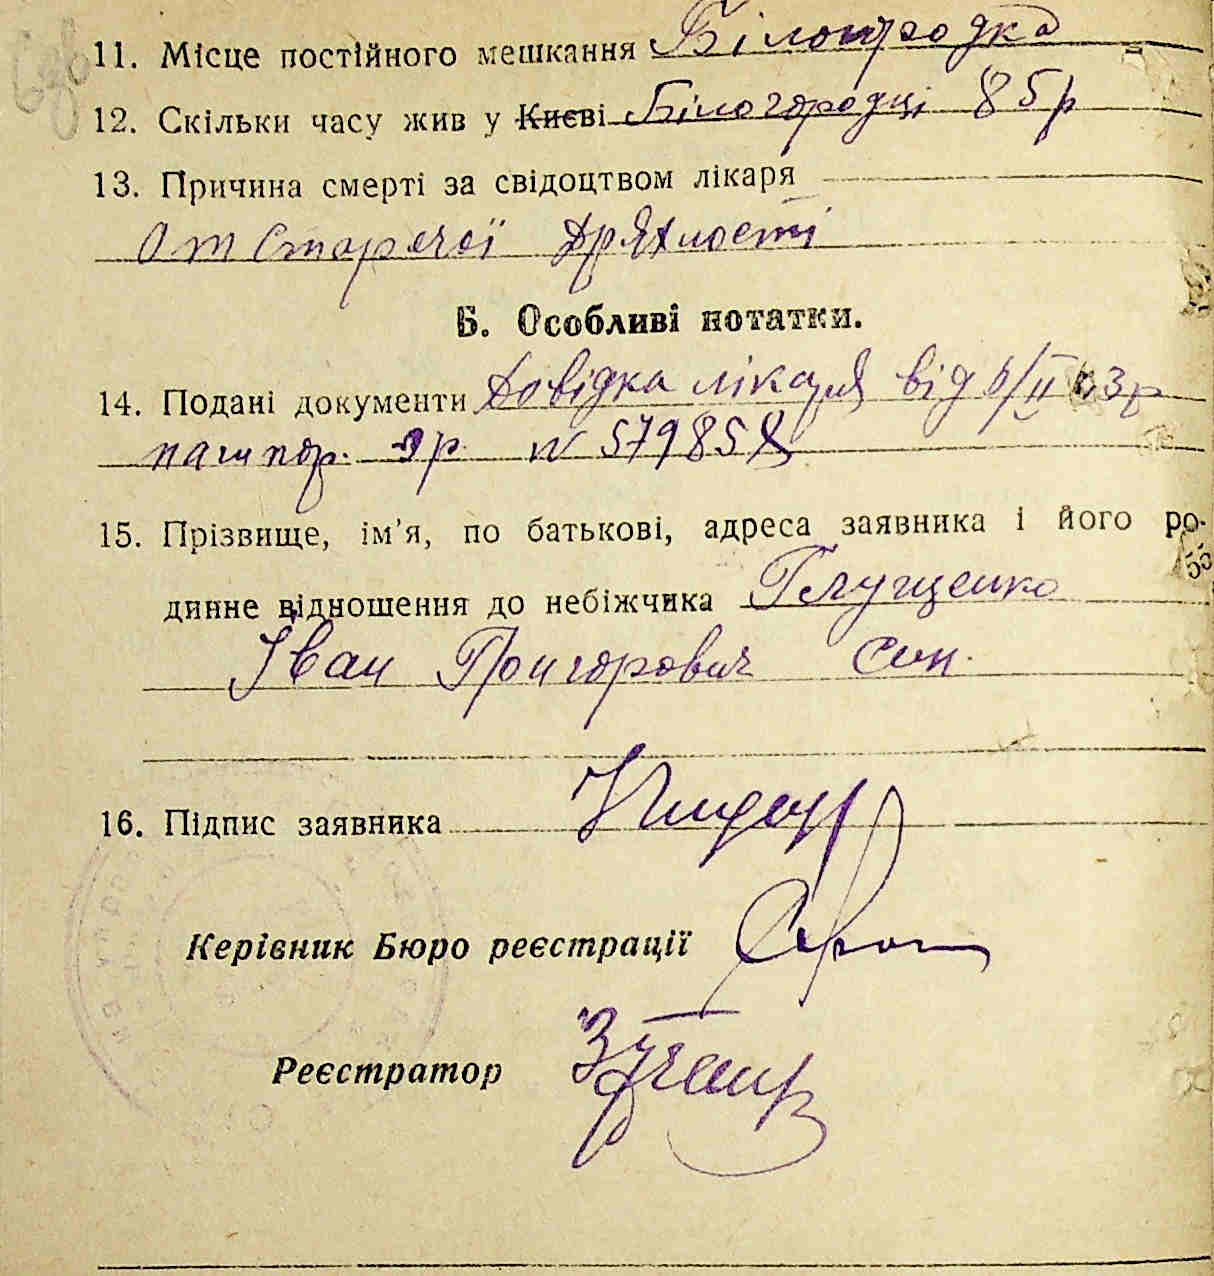 11. Місце постійного мешкання Білогородка
12. Скільки часу жив у Києві Білогородці 85 р
13. Причина смерті за свідоцтвом лікаря
От Старечої дряхлості
Б. Особливі нотатки.
14. Подані документи Довідка лікаря від 6/II 43р
пашпор. № 579858
15. Прізвище, ім'я, по батькові, адреса заявника і його ро-
динне відношення до небіжчика Глущенко
Іван Григорович син.
16. Підпис заявника
Керівник Бюро реєстрації
Реєстратор